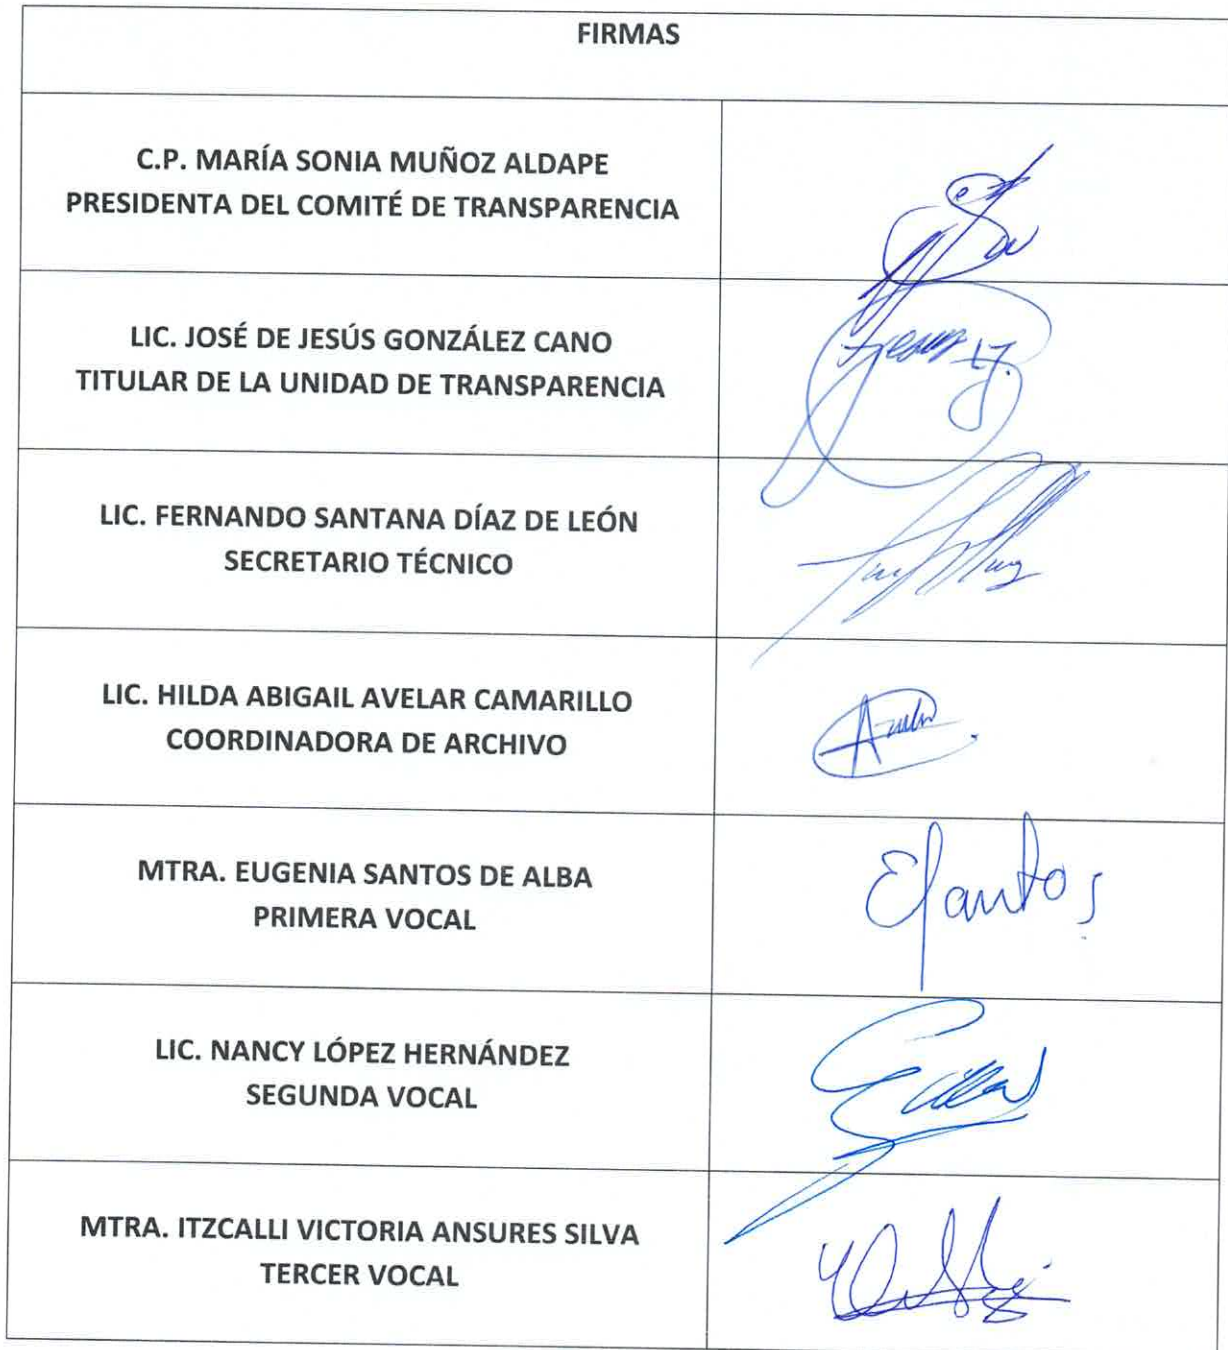 FIRMAS
C.P. MARÍA SONIA MUÑOZ ALDAPE
PRESIDENTA DEL COMITÉ DE TRANSPARENCIA
LIC. JOSÉ DE JESÚS GONZÁLEZ CANO
TITULAR DE LA UNIDAD DE TRANSPARENCIA
LIC. FERNANDO SANTANA DÍAZ DE LEÓN
SECRETARIO TÉCNICO
LIC. HILDA ABIGAIL AVELAR CAMARILLO
COORDINADORA DE ARCHIVO
MTRA. EUGENIA SANTOS DE ALBA
PRIMERA VOCAL
ESantos
LIC. NANCY LÓPEZ HERNÁNDEZ
SEGUNDA VOCAL
MTRA. ITZCALLI VICTORIA ANSURES SILVA
TERCER VOCAL